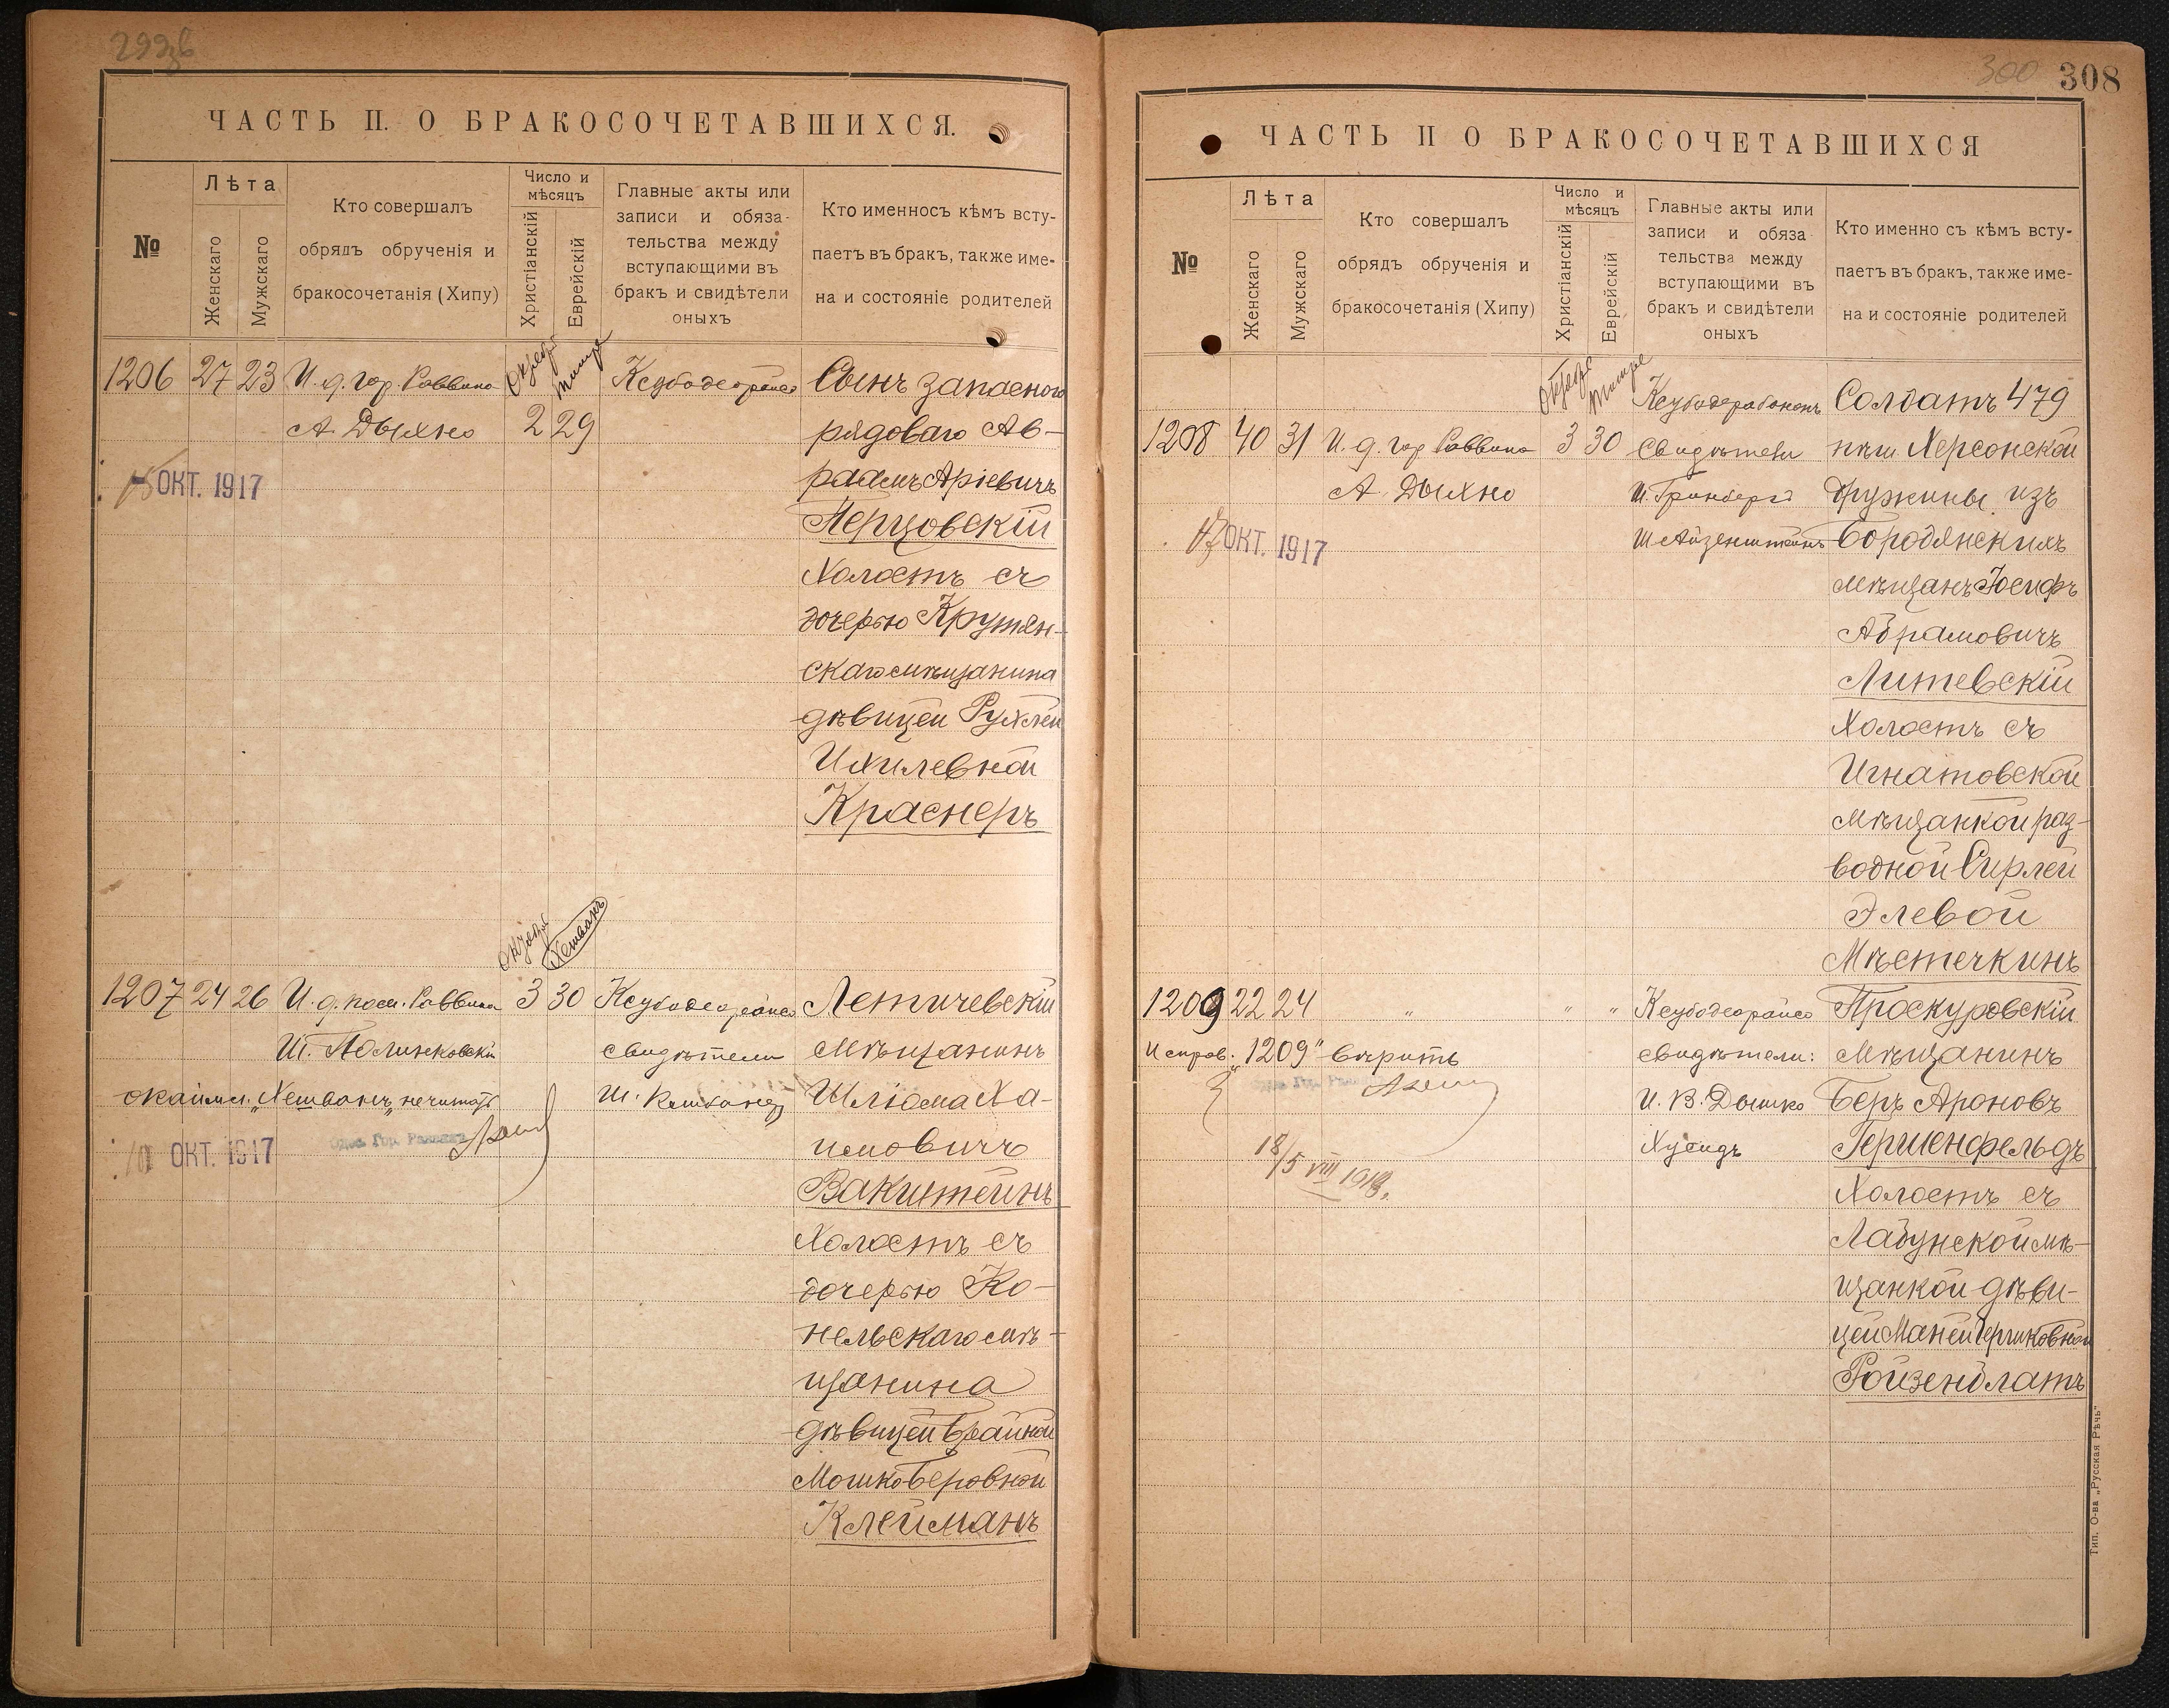 ЧАСТЬ II. О БРАКОСОЧЕТАВШИХСЯ.
№
Лѣта
Женскаго
Мужскаго
Кто совершалъ
обрядъ обрученія и
бракосочетанія (Хипу)
Число и
мѣсяцъ
Христіанскій
Еврейскій
Главные акты или
записи и обяза-
тельства между
вступающими въ
бракъ и свидѣтели
оныхъ
Кто именносъ кѣмъ всту-
паетъ въ бракъ, также име-
на и состояніе родителей
1206 27 23 И. д. гор. Раввина
А. Дыхно
2 29
Сынъ запасного
рядоваго Ав-
раамъ Аріевичъ
Перцовскій
Холостъ съ
дочерью Крутян-
скаго мѣщанина
дѣвицей Рухлей
Ихилевной
Краснеръ
ОКТ. 1917
1207 24 26 И. д. пом. Раввина 3 30
Хешванъ
свидѣтели
Летичевскій
мѣщанинъ
Шліома Ха-
имовичъ
Вакштейнъ
Холостъ съ
дочерью Ко-
нельскаго мѣ-
щанина
дѣвицей Брайной
Мошко-Беровной
Клейманъ
окаймл. „Хешванъ„ нечитать
ОКТ. 1917
300 308
ЧАСТЬ II О БРАКОСОЧЕТАВШИХСЯ
№
Лѣта
Женскаго
Мужскаго
Кто совершалъ
обрядъ обрученія и
бракосочетанія (Хипу)
Число и
мѣсяцъ
Христіанскій
Еврейскій
Главные акты или
записи и обяза
тельства между
вступающими въ
бракъ и свидѣтели
оныхъ
Кто именно съ кѣмъ всту-
паетъ въ бракъ, также име-
на и состояніе родителей
1208 40 31 И. д. гор Раввина 3 30
А. Дыхно
свидѣтели
И. Гринбергъ
Ш Айзенштейнъ
Солдатъ 479
пѣш. Херсонской
дружины изъ
Бородянскихъ
мѣщанъ Іосифъ
Абрамовичъ
Литевскій
Холостъ съ
Игнатовской
мѣщанкой раз-
водной Сирлей
Элевой
Мѣстечкинъ
ОКТ. 1917
1209 22 24 „ „ „
Исправ. „1209” вѣрить
свидѣтели:
И. В. Дышко
Хусидъ
Проскуровскій
мѣщанинъ
Беръ Ароновъ
Гершенфельдъ
Холостъ съ
Лабунской мѣ-
щанкой дѣви-
цей Маней Гершковной
Ройзенблатъ
Тип. О-ва „Русская Рѣчь“